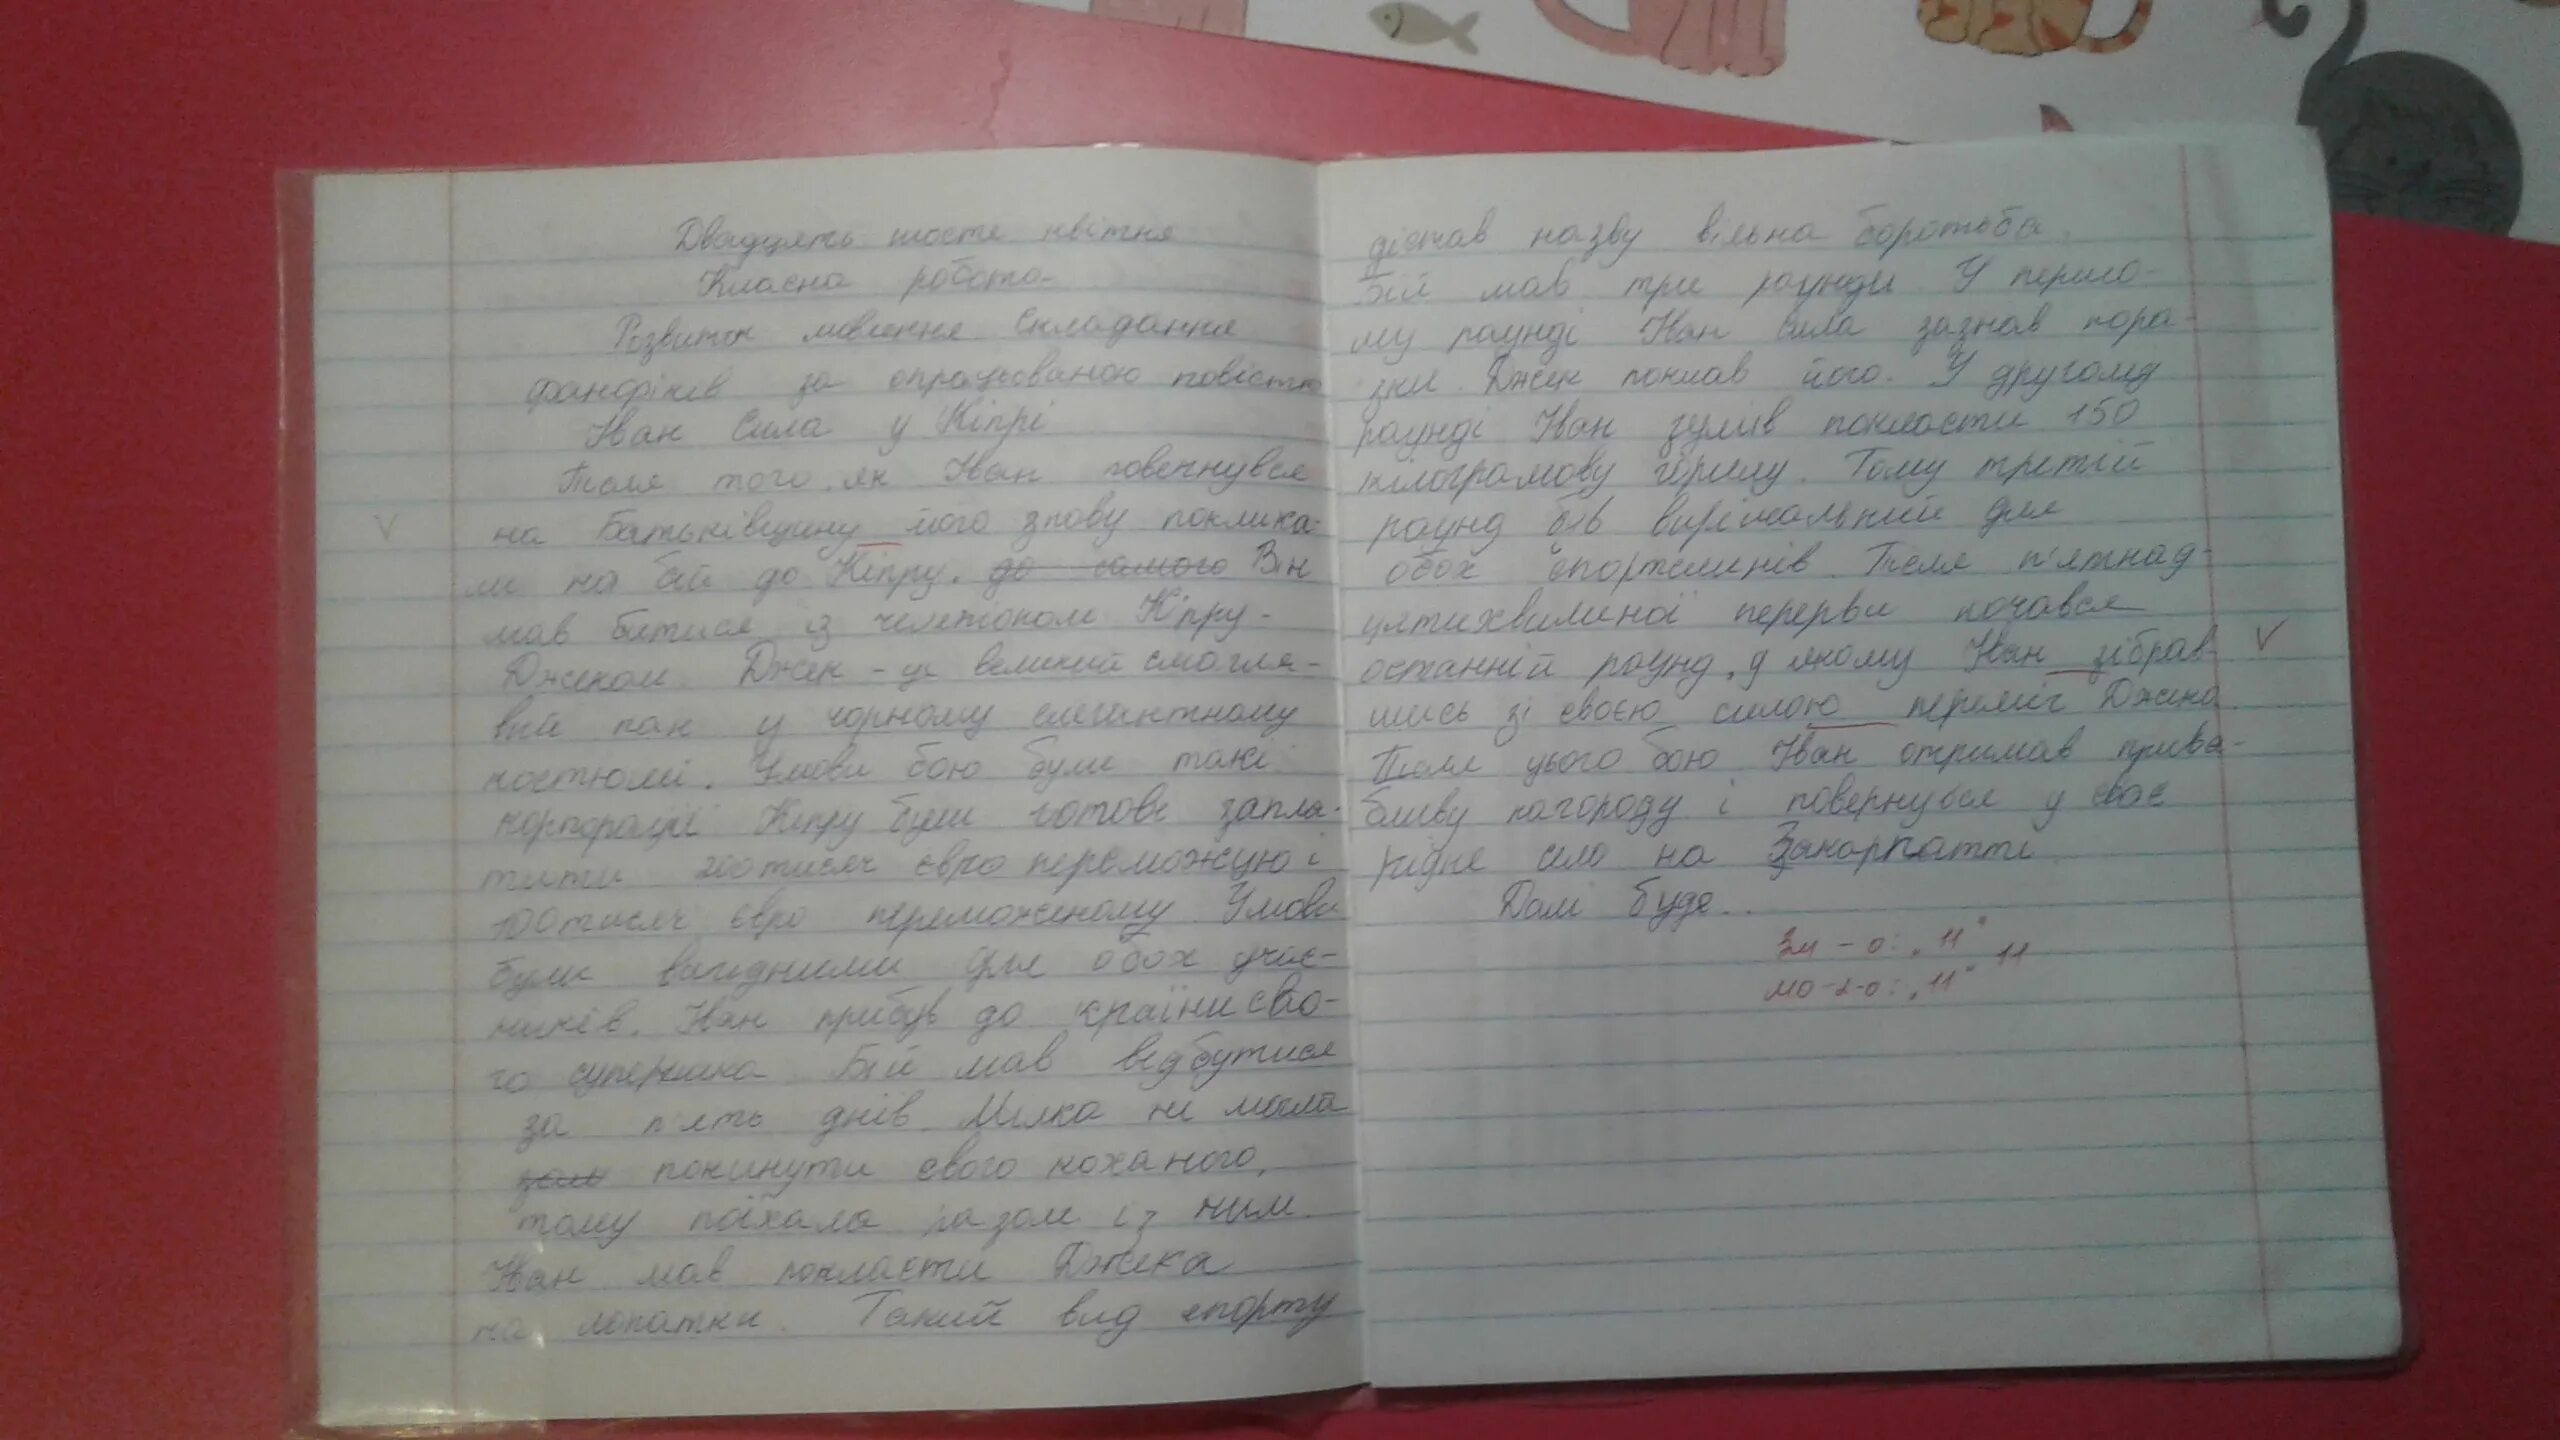 Двадцять шосте квітня
Класна робота
Розвиток мовлення. Складання
фанфіків за опрацьованою повістю
Іван Сила у Кіпрі
Після того, як Іван повернувся
на Батьківщину його знову поклика-
ли на бій до Кіпру. до самого Він
мав битися із чемпіоном Кіпру-
Джеком. Джек - це великий смагля-
вий пан у чорному елегантному
костюмі. Умови бою були такі:
корпорації Кіпру були готові запла-
тити 200 тисяч євро переможцю і
100 тисяч євро переможеному. Умови
були вигідними для обох учас-
ників. Іван прибув до країни сво-
го суперника. Бій мав відбутися
за п'ять днів. Мілка не могла
покинути свого коханого,
тому поїхала разом із ним.
Іван мав покласти Джека
на лопатки. Такий вид спорту
дістав назву вільна боротьба.
Бій мав три раунди. У першо-
му раунді Іван Сила зазнав пора-
зки. Джек поклав його. У другому
раунді Іван зумів покласти 150
кілограмову горилу. Тому третій
раунд був вирішальний для
обох спортсменів. Після п'ятнад-
цятихвилиної перерви почався
останній раунд, у якому Іван зібрав-
шись зі своєю силою переміг Джека.
Після цього бою Іван отримав приваб-
ливу нагороду і повернувся у своє
рідне село на Закарпатті.
Далі буде...
Зм - о: „11" 11
МО-2-о: „11"